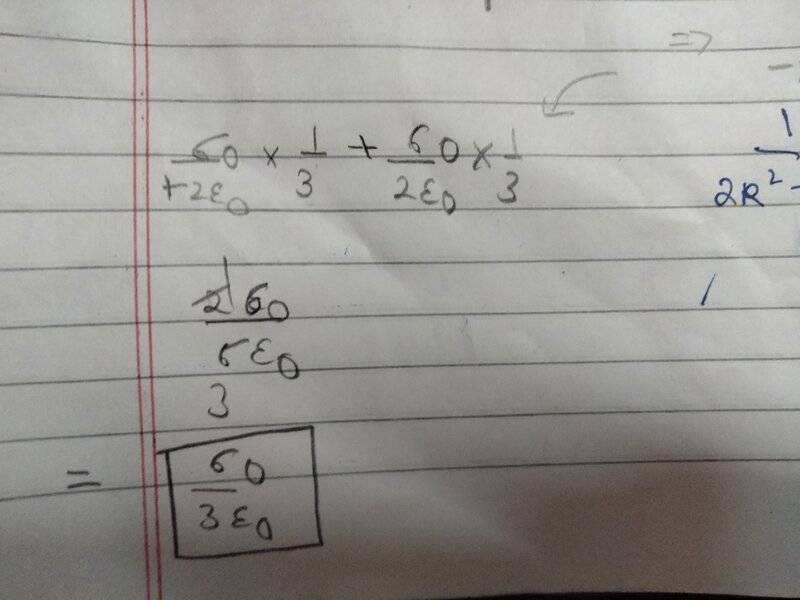 ⇒
σ0/+2ε0 × 1/3 + σ0/2ε0 × 1/3
1/2R² -
2σ0/6ε0
1
3
= σ0/3ε0